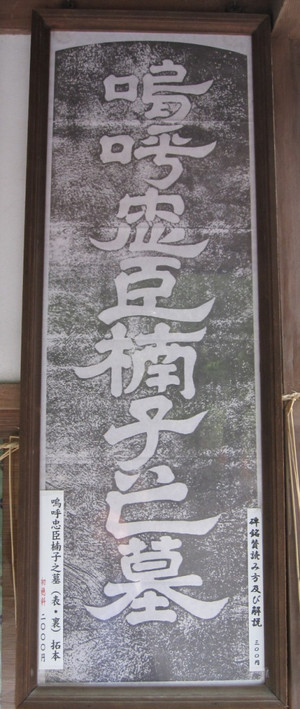 嗚呼忠臣楠子之墓
碑銘賛読み方及び解説 三〇〇円
嗚呼忠臣楠子之墓（表・裏）拓本 初穂料 二〇〇〇円